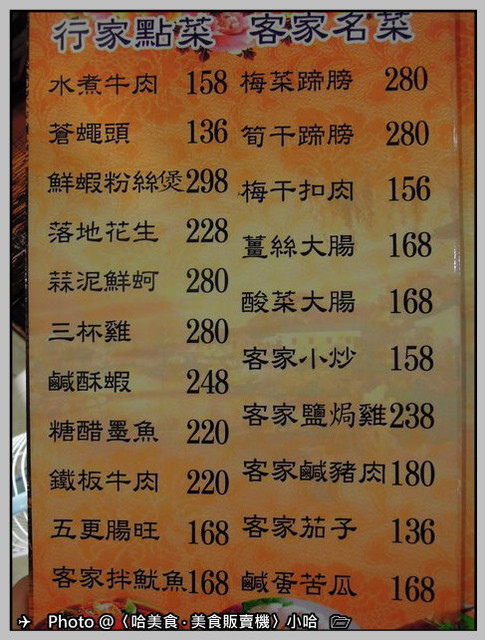 行家點菜
水煮牛肉 158
蒼蠅頭 136
鮮蝦粉絲煲 298
落地花生 228
蒜泥鮮蚵 280
三杯雞 280
鹹酥蝦 248
糖醋墨魚 220
鐵板牛肉 220
五更腸旺 168
客家拌魷魚 168
客家名菜
梅菜蹄膀 280
筍干蹄膀 280
梅干扣肉 156
薑絲大腸 168
酸菜大腸 168
客家小炒 158
客家鹽焗雞 238
客家鹹豬肉 180
客家茄子 136
鹹蛋苦瓜 168
Photo @〈哈美食·美食販賣機〉小哈